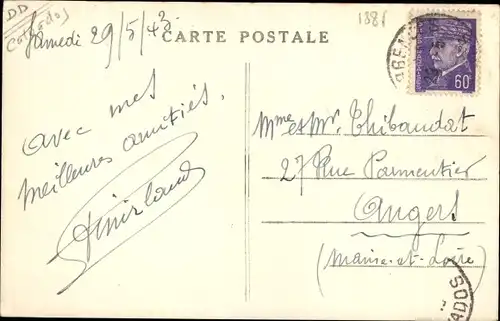 DD
Calvados
Samedi 29/5/43
CARTE POSTALE
1386
60c
avec mes
meilleures amitiés.
Mme et Mr. Thibaudat
27 Rue Parmentier
Angers
(Maine-et-Loire)